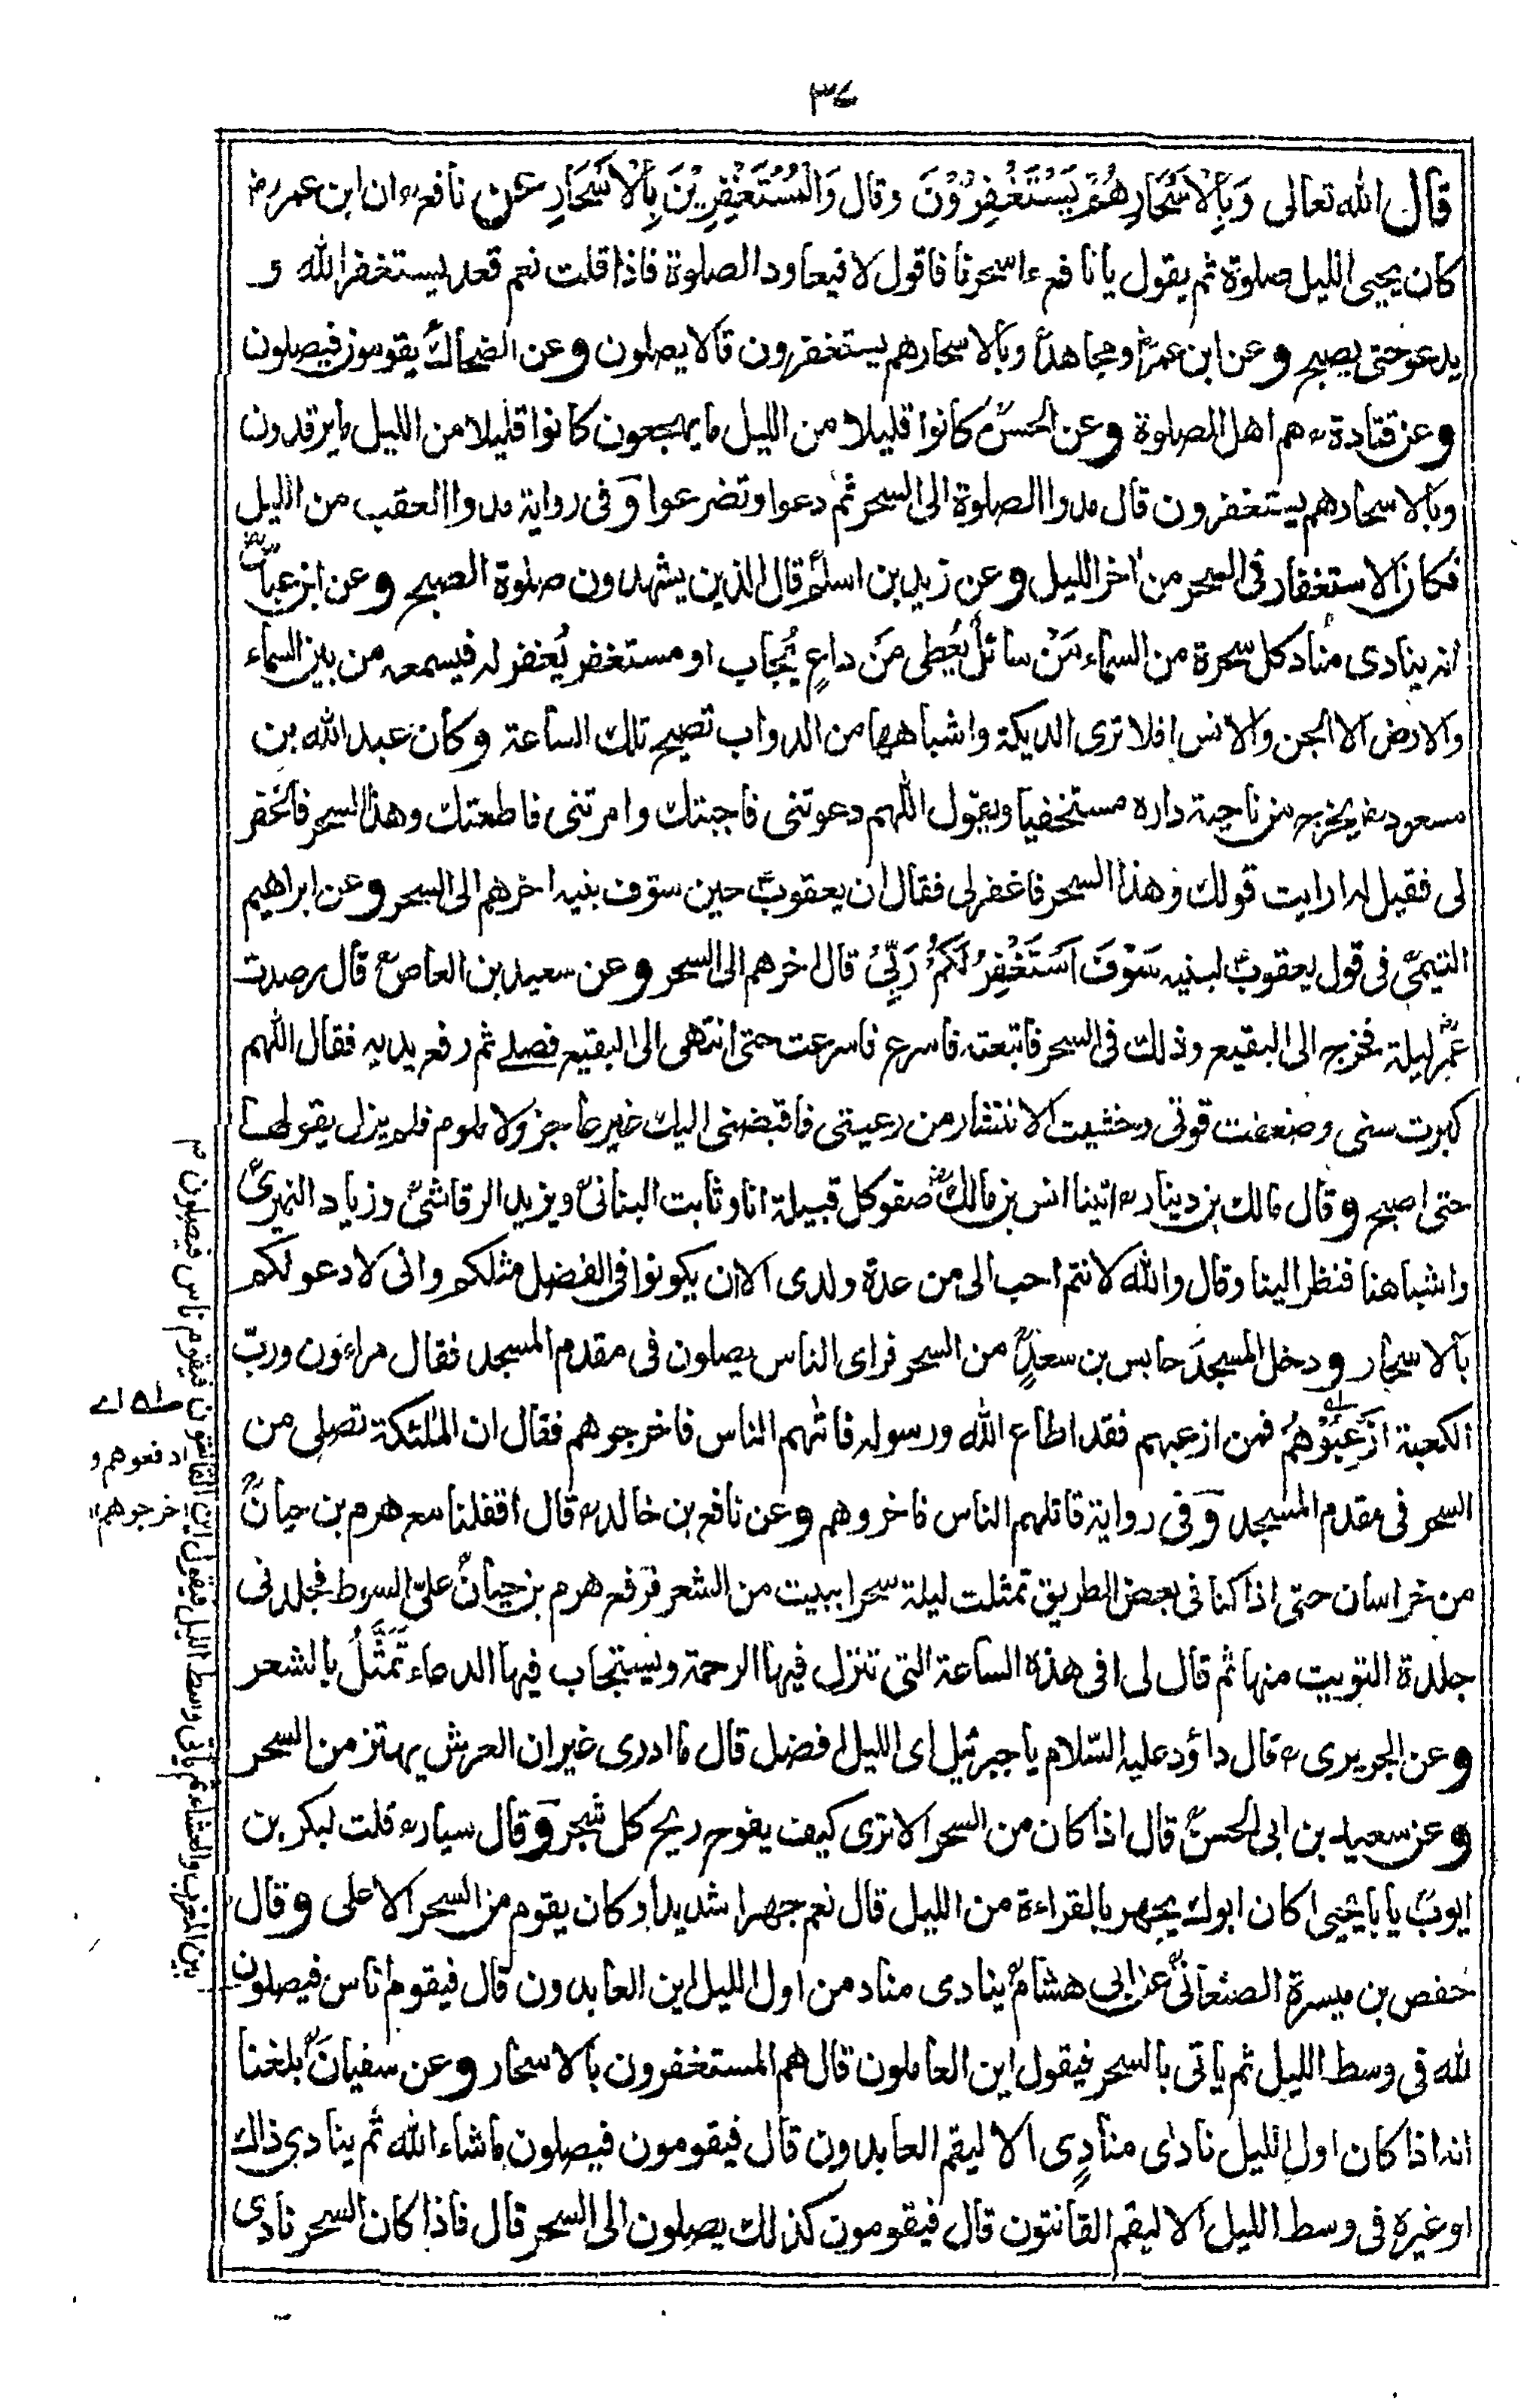 ٣٧
قال الله تعالى وَبِالْاَسْحَارِ هُمْ يَسْتَغْفِرُوْنَ وقال وَالْمُسْتَغْفِرِيْنَ بِالْاَسْحَارِ عن نافع ان ابن عمر رض
كان يحيى الليل صلوة ثم يقول يا نافع ءاسحرنا فاقول لا فيعاود الصلوة فاذا قلت نعم قعد يستغفر الله و
يدعو حتى يصبح وعن ابن عمر ومجاهد وبالاسحار هم يستغفرون قالا يصلون وعن الضحاك يقومون فيصلون
وعن قتادة هم اهل الصلوة وعن الحسن كانوا قليلا من الليل ما يهجعون كانوا قليلا من الليل ما يرقدون
وبالاسحار هم يستغفرون قال مدوا الصلوة الى السحر ثم دعوا وتضرعوا وفى رواية مدوا العقب من الليل
فكان الاستغفار فى السحر من اخر الليل وعن زيد بن اسلم قال الذين يشهدون صلوة الصبح وعن ابن عباس
انه ينادى مناد كل سحرة من السماء مَنْ سائلٌ يُعطى مَن داعٍ يُجاب او مستغفر يُغفر له فيسمعه من بين السماء
والارض الا الجن والانس افلا ترى الديكة واشباهها من الدواب تصيح تلك الساعة وكان عبد الله بن
مسعود رض يخرج من ناحية داره مستخفيا ويقول اللهم دعوتنى فاجبتك وامرتنى فاطعتك وهذا السحر فاغفر
لى فقيل له ارايت قولك وهذا السحر فاغفر لى فقال ان يعقوب حين سوّف بنيه اخرهم الى السحر وعن ابراهيم
التيمى فى قول يعقوب لبنيه سَوْفَ اَسْتَغْفِرُ لَكُمْ رَبِّىْ قال اخرهم الى السحر وعن سعيد بن العاص قال رصدت
عمر ليلة فخرج الى البقيع وذلك فى السحر فاتبعته فاسرع فاسرعت حتى انتهى الى البقيع فصلے ثم رفع يديه فقال اللهم
كبرت سنى وضعفت قوتى وخشيت الانتشار من رعيتى فاقبضنى اليك غير عاجز ولا ملوم فلم يزل يقولها
حتى اصبح وقال مالك بن دينار اتينا انس بن مالك صفو كل قبيلة انا وثابت البنانى ويزيد الرقاشى وزياد النميرى
واشباهنا فنظر الينا وقال والله لانتم احب الى من عدة ولدى الا ان يكونوا فى الفضل مثلكم وانى لادعو لكم
بالاسحار ودخل المسجدَ حابس بن سعدٍ من السحر فراى الناس يصلون فى مقدم المسجد فقال مراءون وربّ
الكعبة ازعبوهُم فمن ازعبهم فقد اطاع الله ورسوله فاتهم الناس فاخرجوهم فقال ان الملٰئكة تصلى من
السحر فى مقدم المسجد وفى رواية قاتلهم الناس فاخروهم وعن نافع بن خالد قال اقفلنا مع هرم بن حيان
من خراسان حتى اذا كنا فى بعض الطريق تمثلت ليلة سحرا ببيت من الشعر فرفع هرم بن حيان علىّ السوط فجلدنى
جلدة التويت منها ثم قال لى افى هذه الساعة التى تنزل فيها الرحمة ويستجاب فيها الدعاء تَمَثَّلُ بالشعر
وعن الجريرى قال داؤد عليه السّلام يا جبرئيل اى الليل افضل قال ما ادرى غير ان العرش يهتز من السحر
وعن سعيد بن ابى الحسن قال اذا كان من السحر الا ترى كيف يفوح ريح كل شجر وقال سيار قلت لبكر بن
ايوب يا با يحيى اكان ابوك يجهر بالقراءة من الليل قال نعم جهرا شديدا وكان يقوم من السحر الاعلى وقال
حفص بن ميسرة الصنعانى عن ابى هشام ينادى مناد من اول الليل اين العابدون قال فيقوم اناس فيصلون
لله فى وسط الليل ثم ياتى بالسحر فيقول اين العاملون قال هم المستغفرون بالاسحار وعن سفيان بلغنا
انه اذا كان اول الليل نادى منادٍى الا ليقم العابدون قال فيقومون فيصلون ما شاء الله ثم ينادى ذاك
او غيره فى وسط الليل الا ليقم القانتون قال فيقومون كذلك يصلون الى السحر قال فاذا كان السحر نادى
بين المغرب والعشاء ثم ياتى وسط الليل فيقول اين القانتون فيقوم ناس فيصلون
اے
ادفعوهم و
اخرجوهم